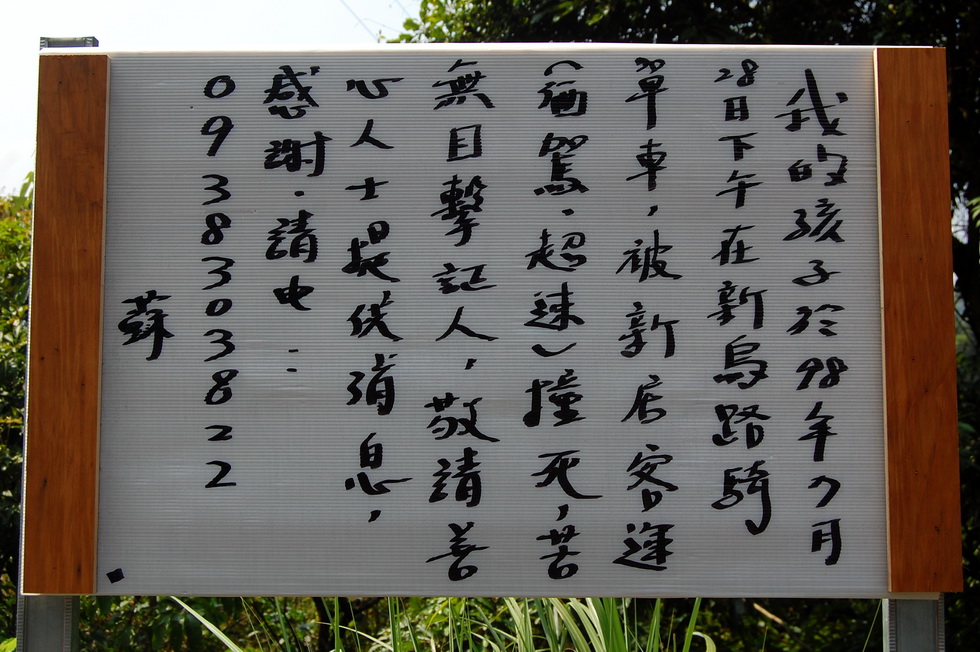 我的孩子於98年7月
28日下午在新烏路騎
單車,被新店客運
(酒駕·超速)撞死,苦
無目擊証人,敬請善
心人士提供消息,
感謝·請电:
0938303822
蘇